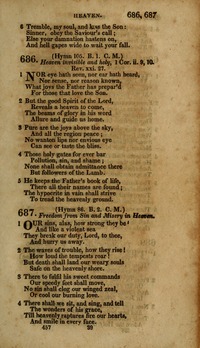 HEAVEN. 686, 687
6 Tremble, my soul, and kiss the Son:
Sinner, obey the Saviour's call;
Else your damnation hastens on,
And hell gapes wide to wait your fall.
686. (Hymn 105. B. 1. C. M.)
Heaven invisible and holy, 1 Cor. ii. 9, 10.
Rev. xxi. 27.
1 NOR eye hath seen, nor ear hath heard,
Nor sense, nor reason known,
What joys the Father has prepar'd
For those that love the Son.
2 But the good Spirit of the Lord,
Reveals a heaven to come,
The beams of glory in his word
Allure and guide us home.
3 Pure are the joys above the sky,
And all the region peace;
No wanton lips nor envious eye
Can see or taste the bliss.
4 Those holy gates for ever bar
Pollution, sin, and shame;
None shall obtain admittance there
But followers of the Lamb.
5 He keeps the Father's book of life,
There all their names are found;
The hypocrite in vain shall strive
To tread the heavenly ground.
687. (Hymn 86. B. 2. C. M.)
Freedom from Sin and Misery in Heaven.
1 OUR sins, alas, how strong they be!
And like a violent sea
They break our duty, Lord, to thee,
And hurry us away.
2 The waves of trouble, how they rise!
How loud the tempests roar!
But death shall land our weary souls
Safe on the heavenly shore.
3 There to fulfil his sweet commands
Our speedy feet shall move,
No sin shall clog our winged zeal,
Or cool our burning love.
4 There shall we sit, and sing, and tell
The wonders of his grace,
Till heavenly raptures fire our hearts,
And smile in every face.
457 28